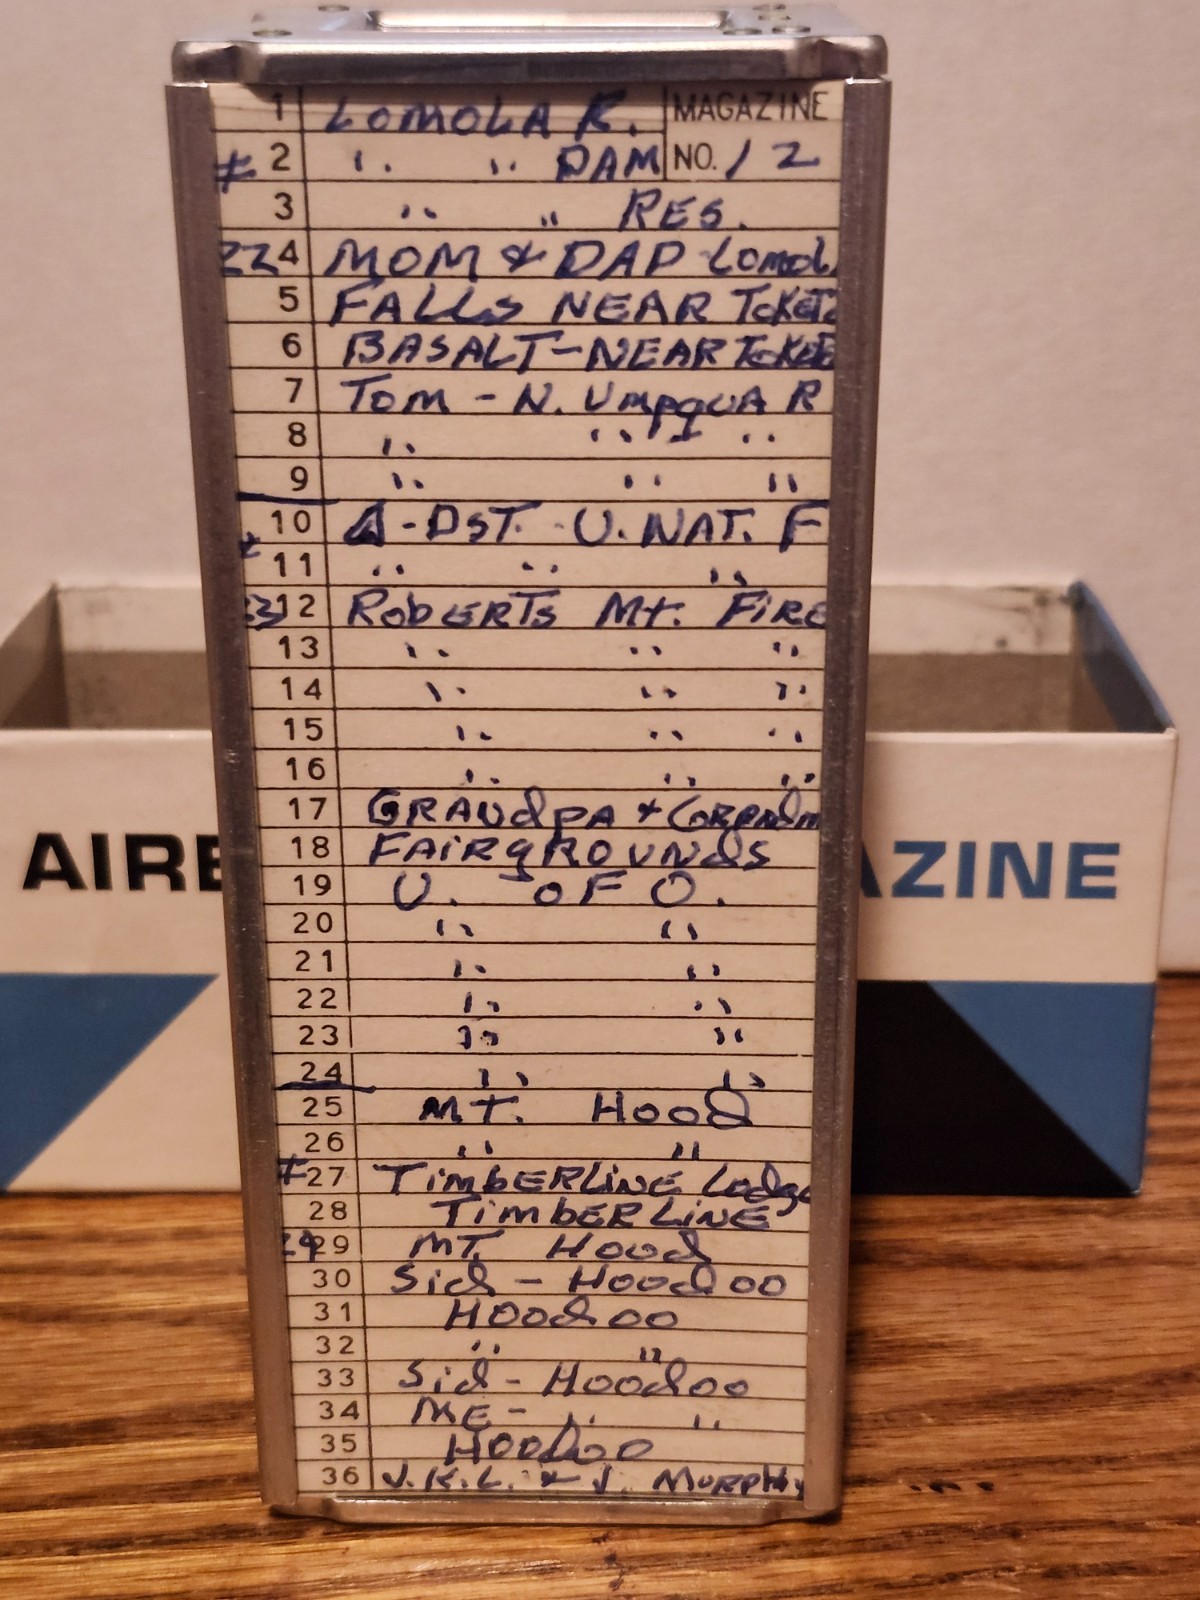 1 LOMOLA R. MAGAZINE
# 2 " " DAM NO. 12
3 " " RES.
22 4 MOM & DAD - LOMOL
5 FALLS NEAR TOKET
6 BASALT - NEAR TOKEE
7 TOM - N. UMPQUA R
8 " " "
9 " " "
10 - DST. - U. NAT. F
# 11 " " "
23 12 ROBERTS MT. FIRE
13 " " "
14 " " "
15 " " "
16 " " "
17 GRANdPA & GRANdm
18 FAIRgROUNdS
19 U. OF O.
20 " "
21 " "
22 " "
23 " "
24 " "
25 MT. HOOd
26 " "
# 27 TimbERLiNE Lodge
28 TimbERLiNE
24 29 MT. HOOd
30 Sid - HOOdOO
31 HOOdOO
32 " "
33 Sid - HOOdOO
34 ME - " "
35 HOOdOO
36 J.K.L. & J. MURPHY
AIRE
AZINE